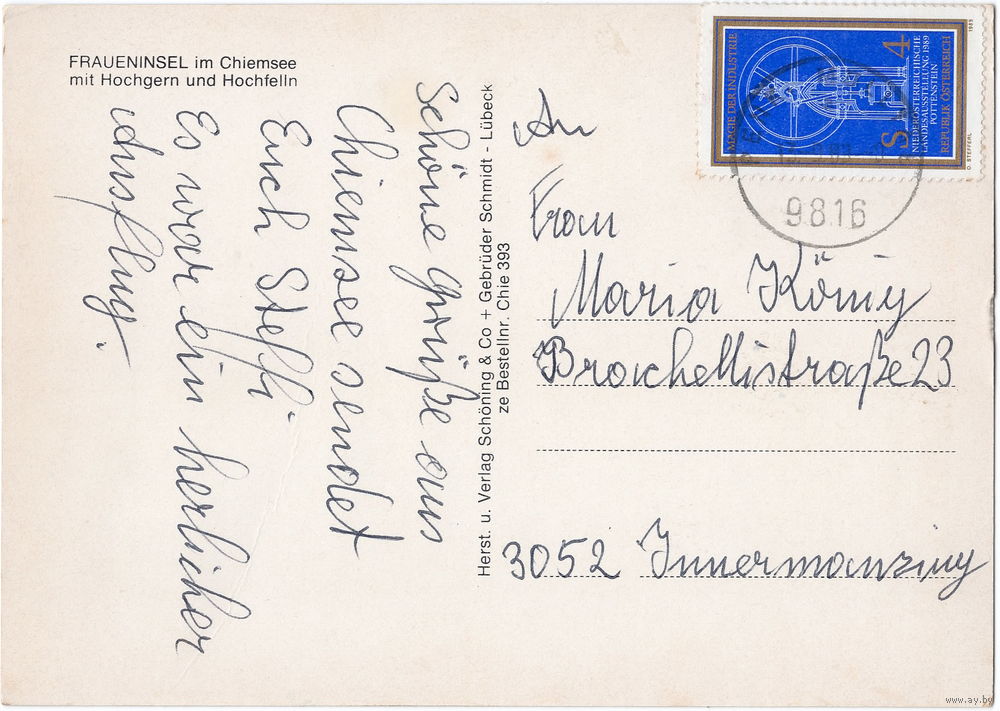 FRAUENINSEL im Chiemsee
mit Hochgern und Hochfelln
Schöne Grüße aus
Chiemsee sendet
Euch Steffi.
Es war ein herlicher
Ausflug.
Herst. u. Verlag Schöning & Co + Gebrüder Schmidt - Lübeck
ze Bestellnr. Chie 393
An
Frau
Maria König
Brochellistraße 23
3052 Innermanzing
MAGIE DER INDUSTRIE
S 4
NIEDERÖSTERREICHISCHE
LANDESAUSSTELLUNG 1989
POTTENSTEIN
REPUBLIK ÖSTERREICH
O. STEFFERL
1989
9816
www.ay.by